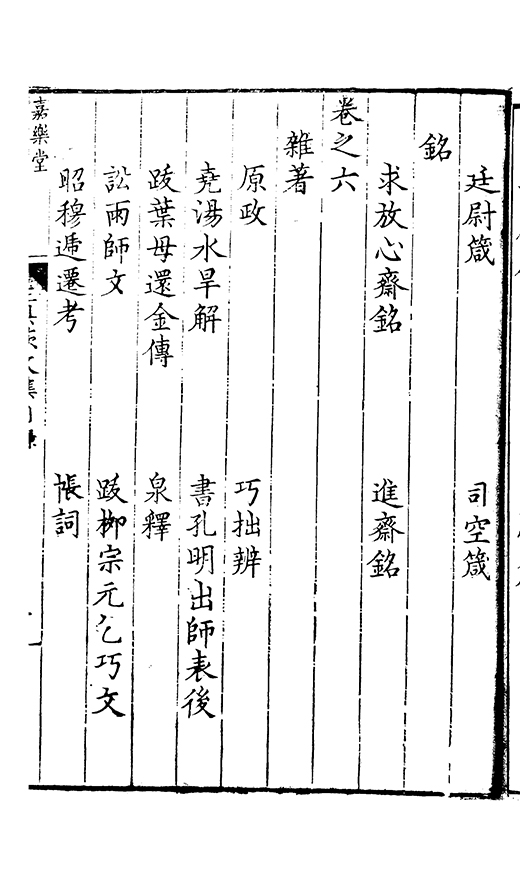 廷尉箴　司空箴
銘
求放心齋銘　進齋銘
卷之六
雜著
原政　巧拙辨
堯湯水旱解　書孔明出師表後
跋葉母還金傳　泉釋
訟兩師文　跋柳宗元乞巧文
昭穆遞遷考　帳詞
嘉樂堂
文集目錄